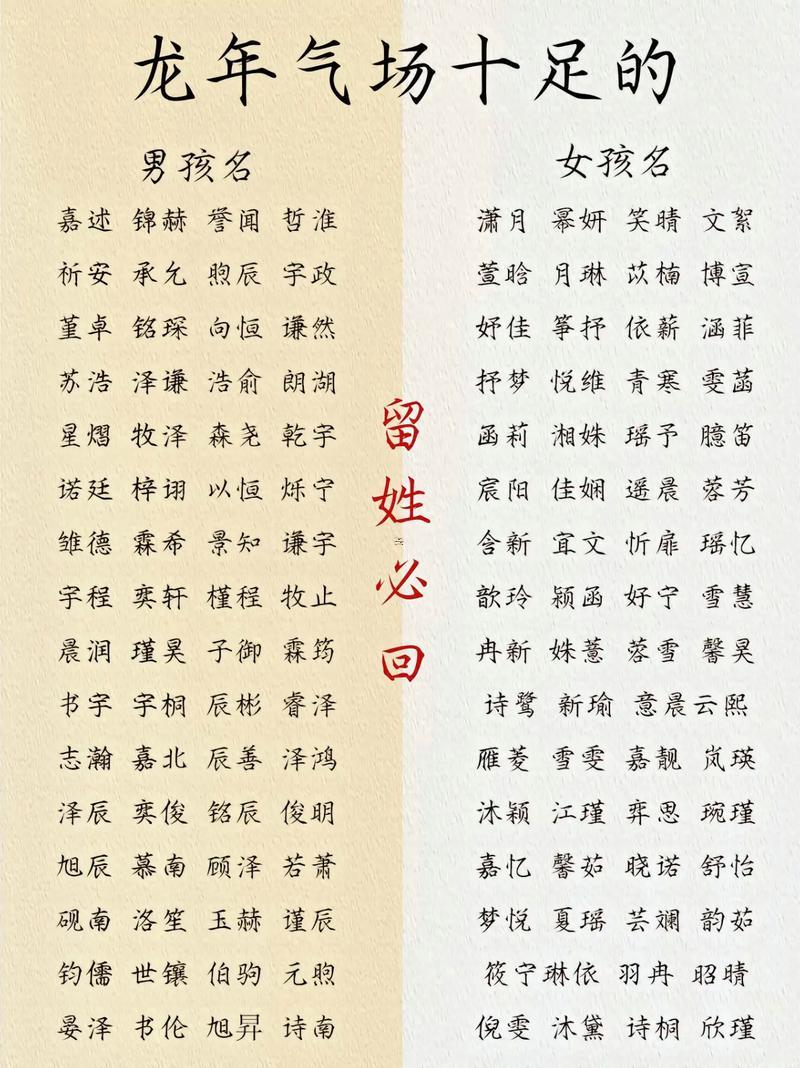 龙年气场十足的
男孩名
嘉述 锦赫 誉闻 哲淮
祈安 承允 煦辰 宇政
堇卓 铭琛 向恒 谦然
苏浩 泽谦 浩俞 朗湖
星熠 牧泽 森尧 乾宇
诺廷 梓诩 以恒 烁宁
雏德 霖希 景知 谦宇
宇程 奕轩 槿程 牧止
晨润 瑾昊 子御 霖筠
书宇 宇桐 辰彬 睿泽
志瀚 嘉北 辰善 泽鸿
泽辰 奕俊 铭辰 俊明
旭辰 慕南 顾泽 若萧
砚南 洛笙 玉赫 谨辰
钧儒 世镶 伯驹 元煦
晏泽 书伦 旭昇 诗南
留姓必回
女孩名
潇月 幂妍 笑晴 文絮
萱晗 月琳 苡楠 博宣
妤佳 筝抒 依薪 涵菲
抒梦 悦维 青寒 雯菡
函莉 湘姝 瑶予 臆笛
宸阳 佳娴 遥晨 蓉芳
含新 宜文 忻扉 瑶忆
歆玲 颖函 好宁 雪慧
冉新 姝薏 蓉雪 馨昊
诗鹭 新瑜 意晨云熙
雁菱 雪雯 嘉靓 岚瑛
沐颖 江瑾 弈思 琬瑾
嘉忆 馨茹 晓诺 舒怡
梦悦 夏瑶 芸斓 韵茹
筱宁琳依 羽冉 昭晴
倪雯 沐黛 诗桐 欣瑾